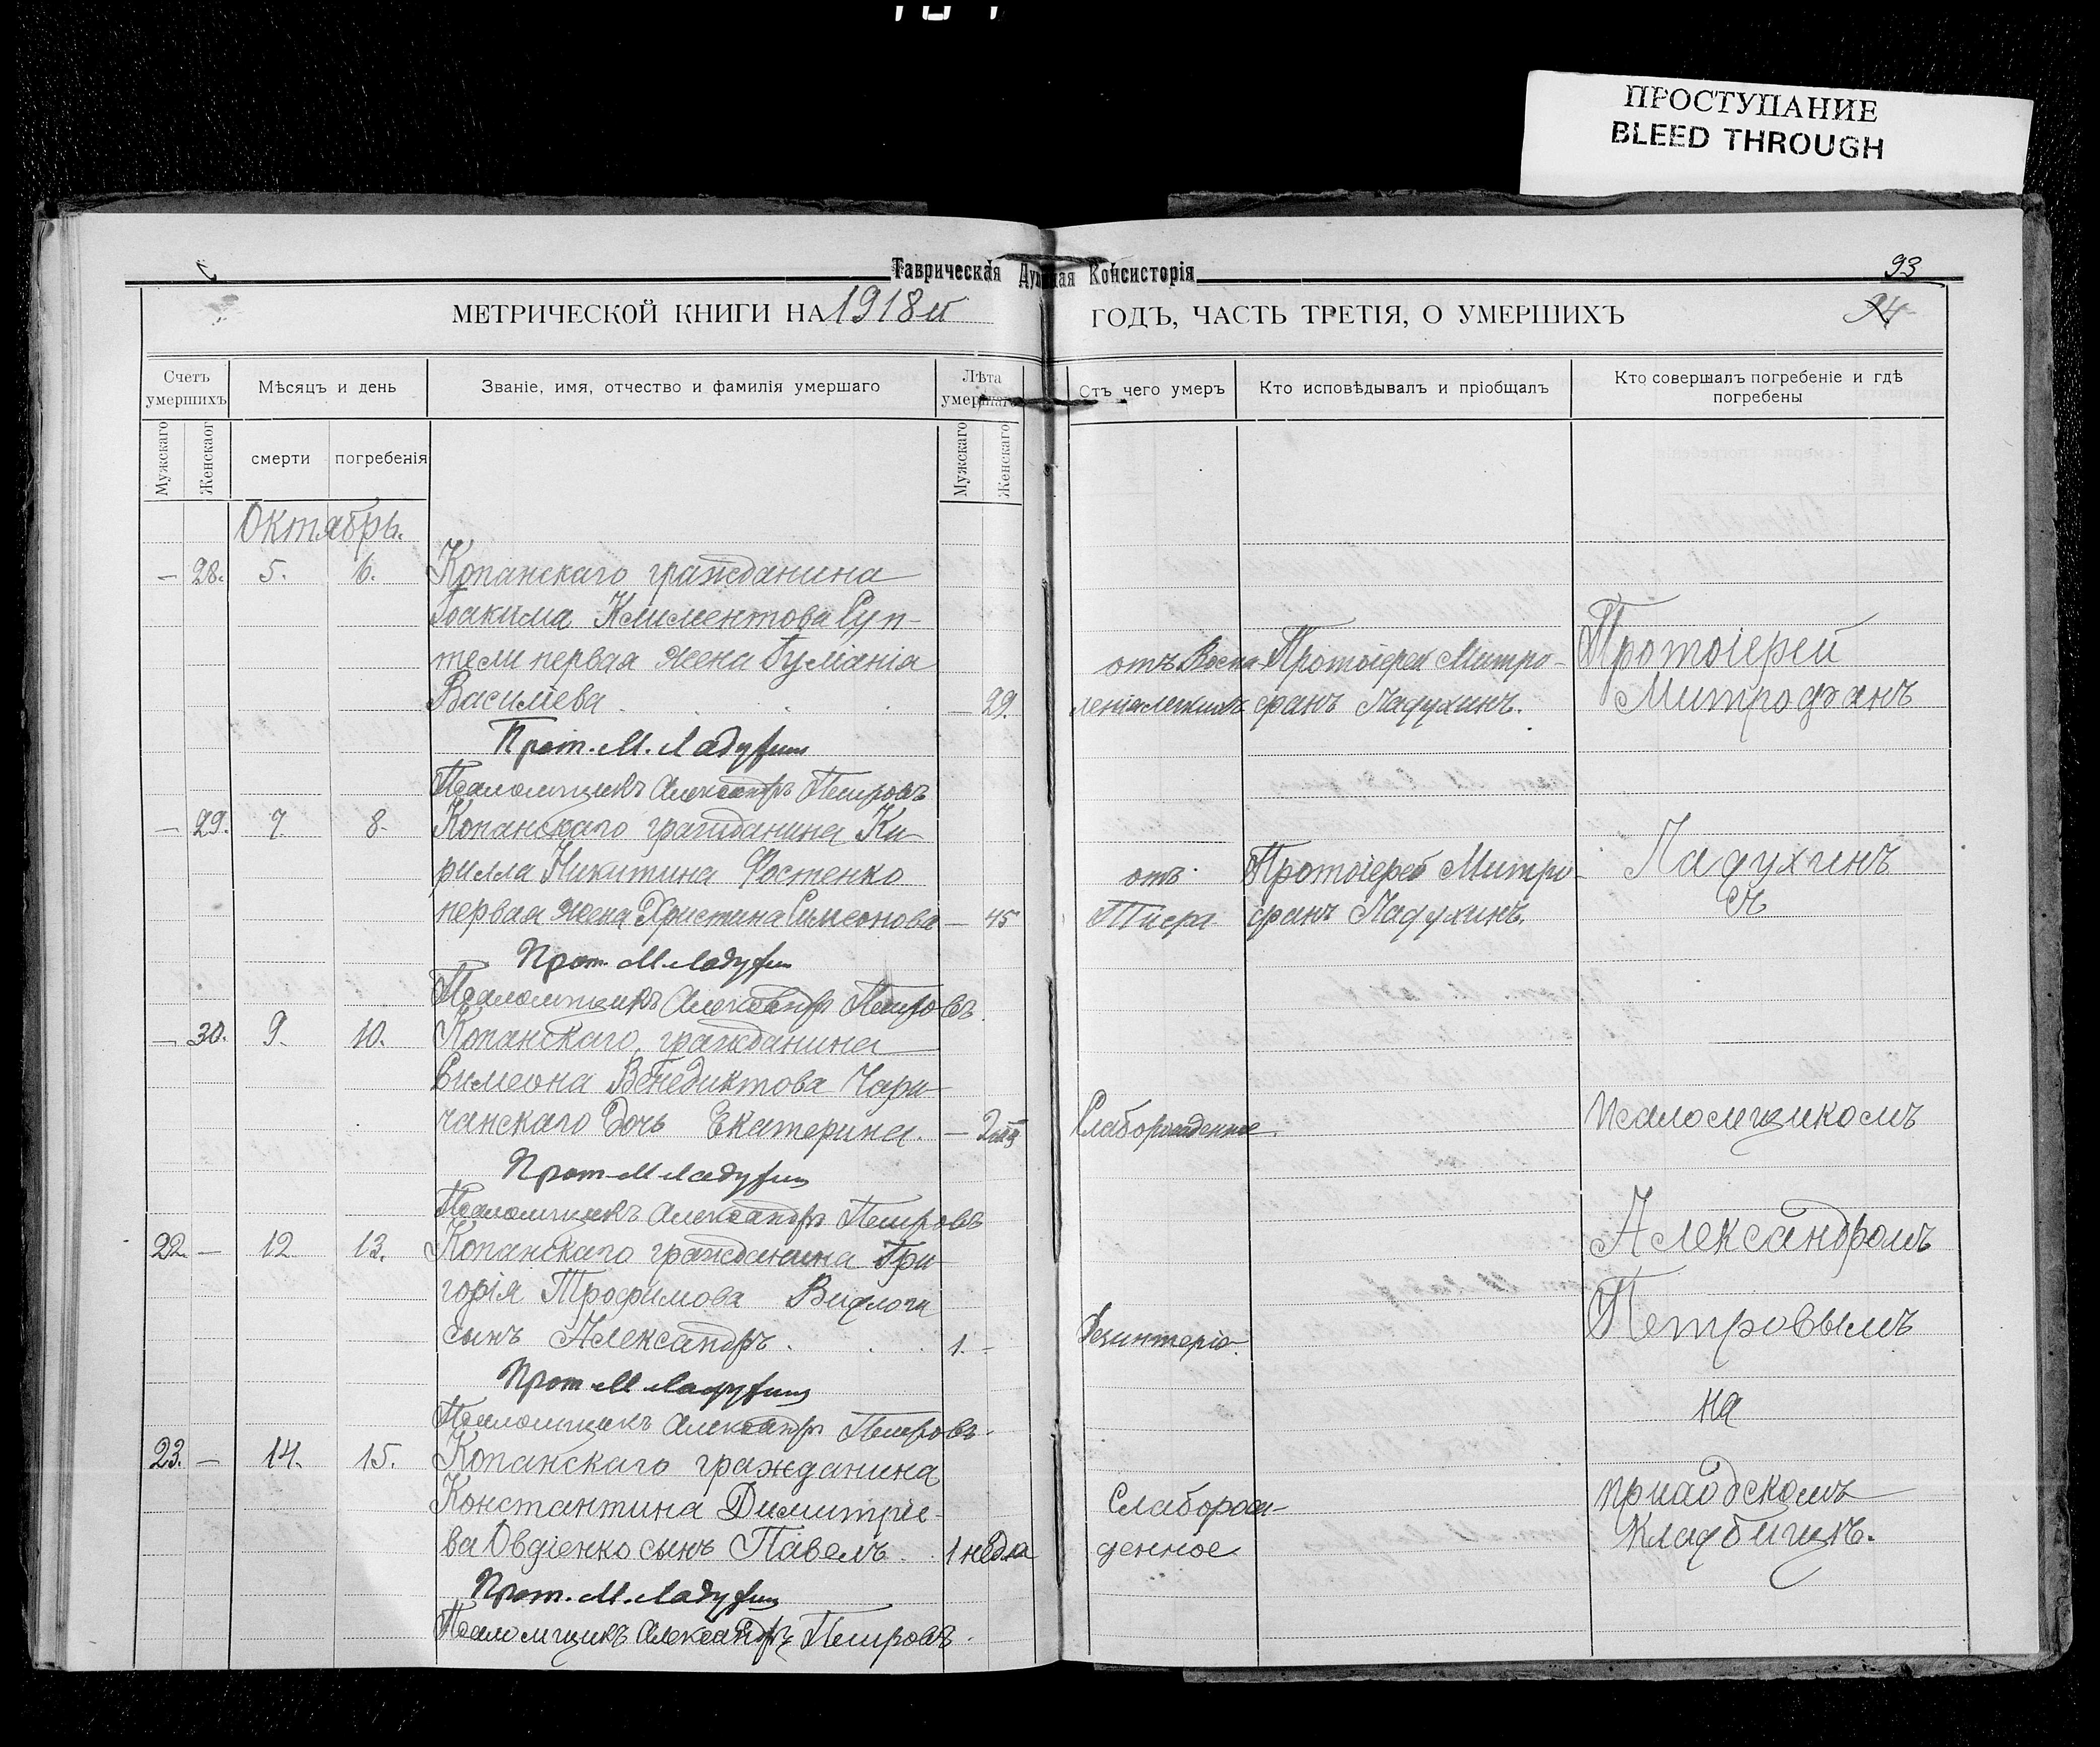 ПРОСТУПАНИЕ
BLEED THROUGH
Таврическая Духовная Консисторія
93
МЕТРИЧЕСКОЙ КНИГИ НА 1918й ГОДЪ, ЧАСТЬ ТРЕТІЯ, О УМЕРШИХЪ
94
Счетъ умершихъ
Мѣсяцъ и день
Званіе, имя, отчество и фамилія умершаго
Лѣта умершаго
Отъ чего умеръ
Кто исповѣдывалъ и пріобщалъ
Кто совершалъ погребеніе и гдѣ погребены
Мужскаго
Женскаго
смерти
погребенія
Мужскаго
Женскаго
Октябрь.
— 28. 5. 6. Копанскаго гражданина
Іоакима Климентова Суп-
тели первая жена
Василіева — 29.
отъ Воспа-
ленія легкихъ
Протоіерей Митро-
фанъ Ладухинъ.
Прот. М. Ладухин
Псаломщикъ Александръ Петровъ
— 29. 7. 8. Копанскаго гражданина Ки-
рилла Никитина Фостенко
первая жена Христина Симеонова — 45
отъ
Тифа
Протоіерей Митро-
фанъ Ладухинъ.
Прот. М Ладухин
Псаломщикъ Александръ Петровъ.
— 30. 9. 10. Копанскаго гражданина
Симеона Венедиктова Чари-
чанскаго дочь Екатерина. —
Слаборожденное.
Прот. М Ладухин
Псаломщикъ Александръ Петровъ
22. — 12 13. Копанскаго гражданина Гри-
горія Трофимова
сынъ Александръ. 1. —
Дезинтерія.
Прот. М Ладухин
Псаломщикъ Александръ Петровъ.
23. — 14. 15. Копанскаго гражданина
Константина Димитріе-
ва Овдіенко сынъ Павелъ. 1 недѣ
Слаборож-
денное
Прот. М. Ладухин
Псаломщикъ Александръ Петровъ.
Протоіерей
Митрофанъ
Ладухинъ
съ
псаломщикомъ
Александромъ
Петровымъ
на
приходскомъ
кладбищѣ.